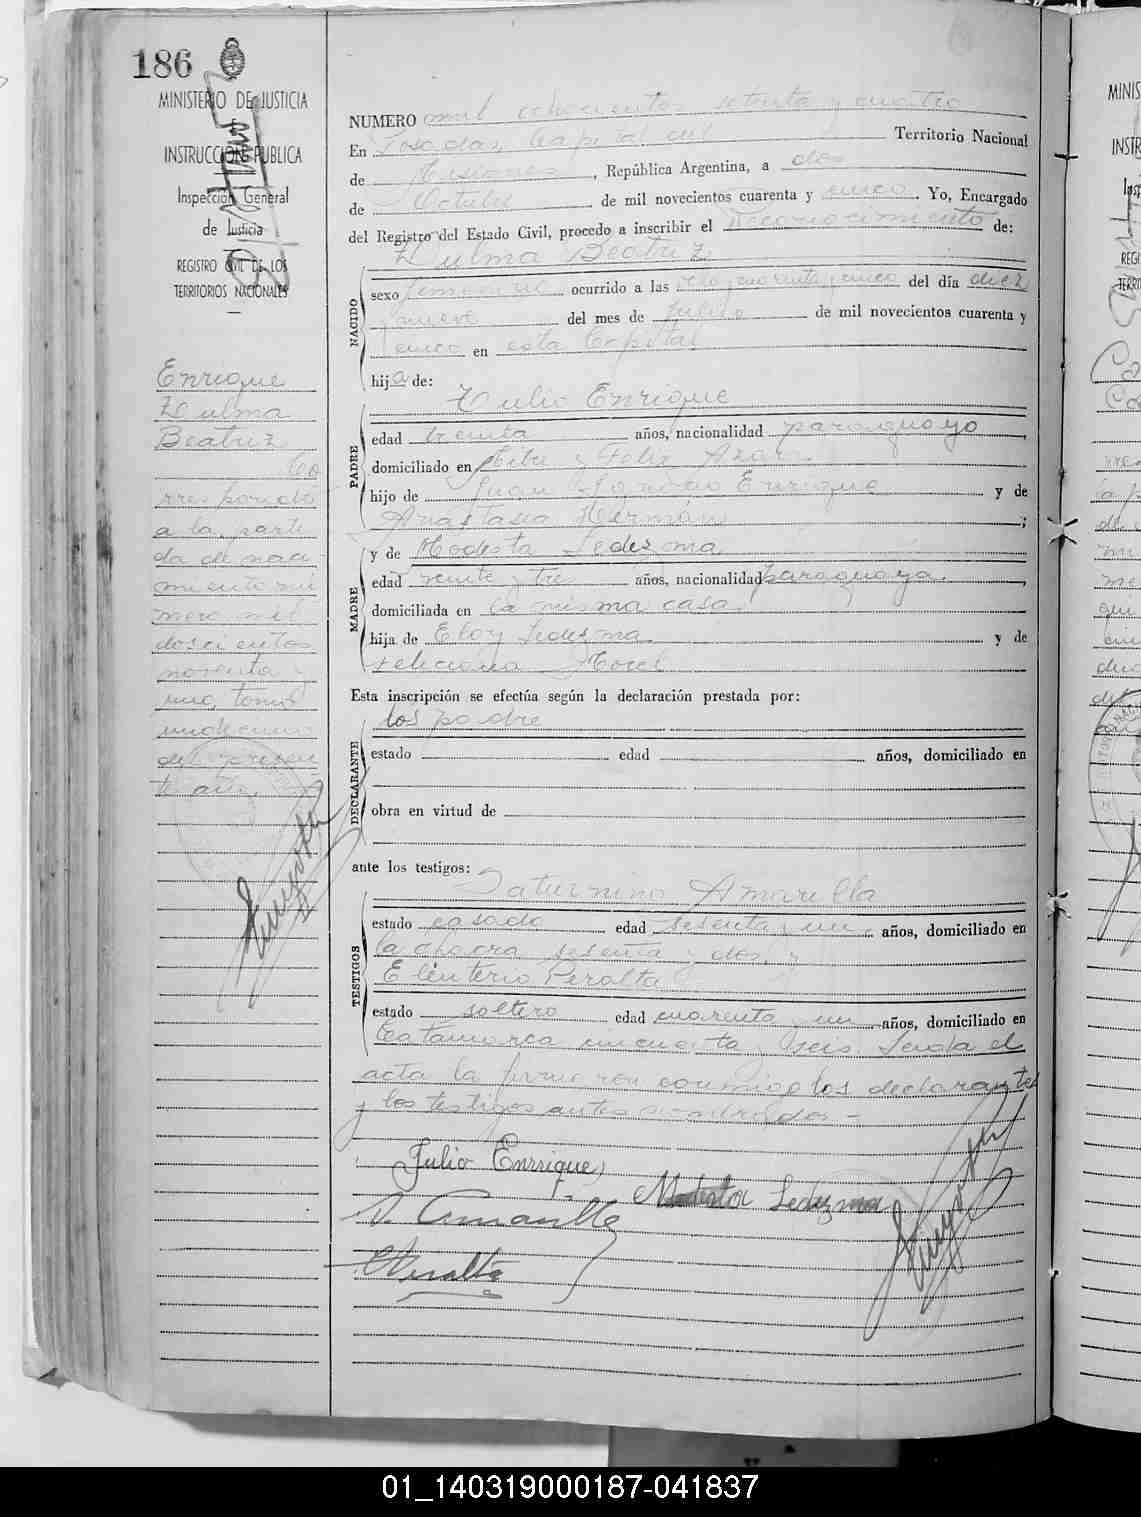 186
MINISTERIO DE JUSTICIA
E
INSTRUCCION PUBLICA
Inspección General
de Justicia
REGISTRO CIVIL DE LOS
TERRITORIOS NACIONALES
Enrique
Zulma
Beatriz
Co
rresponde
a la parti
da de naci
miento nú
mero mil
doscientos
noventa y
uno, tomo
undécimo
del presen
te año
NUMERO mil ochocientos setenta y cuatro
En Posadas, Capital del Territorio Nacional
de Misiones, República Argentina, a dos
de Octubre de mil novecientos cuarenta y cinco. Yo, Encargado
del Registro del Estado Civil, procedo a inscribir el Reconocimiento de:
Zulma Beatriz
NACIDO
sexo femenino ocurrido a las cuarenta y cinco del día diez
y nueve del mes de de mil novecientos cuarenta y
cinco en esta Capital
hija de:
Julio Enrique
PADRE
edad treinta años, nacionalidad paraguayo,
domiciliado en y Felix Azara
hijo de Juan Enrique y de
Anastasia Germán;
y de Modesta Ledezma
MADRE
edad veinte y tres años, nacionalidad paraguaya,
domiciliada en la misma casa
hija de Eloy Ledezma y de
Feliciana Morel
Esta inscripción se efectúa según la declaración prestada por:
los padre
DECLARANTE
estado edad años, domiciliado en
obra en virtud de
ante los testigos:
Saturnino Amarilla
TESTIGOS
estado casado edad sesenta y un años, domiciliado en
la chacra sesenta y dos, y
Eleuterio Peralta
estado soltero edad cuarenta y un años, domiciliado en
Catamarca cincuenta y seis. Leida el
acta la firmaron conmigo los declarantes
y los testigos antes nombrados -
Julio Enrrique
Modesta Ledezma
S. Amarilla
E Peralta
MINIS
INSTR
Insp
REGI
TERRIT
01_140319000187-041837